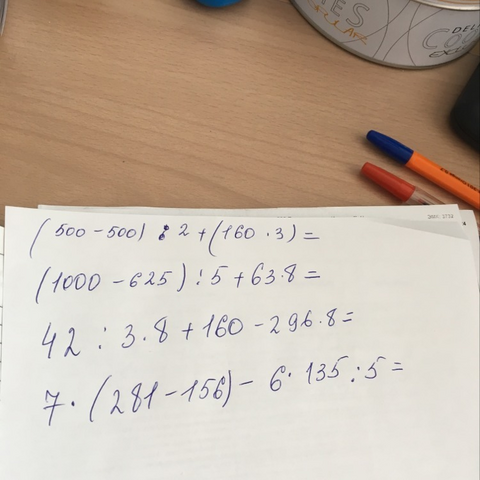 DEL
(500 - 500) : 2 + (160 · 3) =
(1000 - 625) : 5 + 63 · 8 =
42 : 3 · 8 + 160 - 296 · 8 =
7 · (281 - 156) - 6 · 135 : 5 =